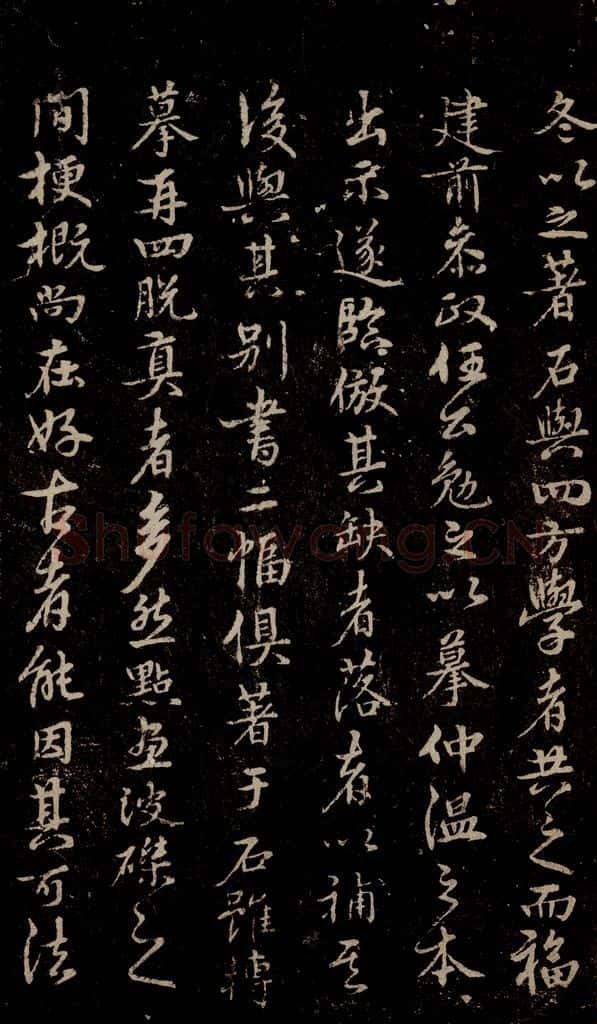 冬以之著石與四方學者共之而福
建前叅政任公勉之以摹仲温之本
出示遂臨倣其缺者落者以補其
後與其别書二幅俱著于石雖轉
摹再四脱真者多然點畫波磔之
間梗概尚在好古者能因其可法
Shufawang.CN